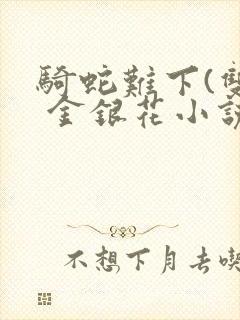 騎蛇難下(雙
金銀花小說
不想下月去喫